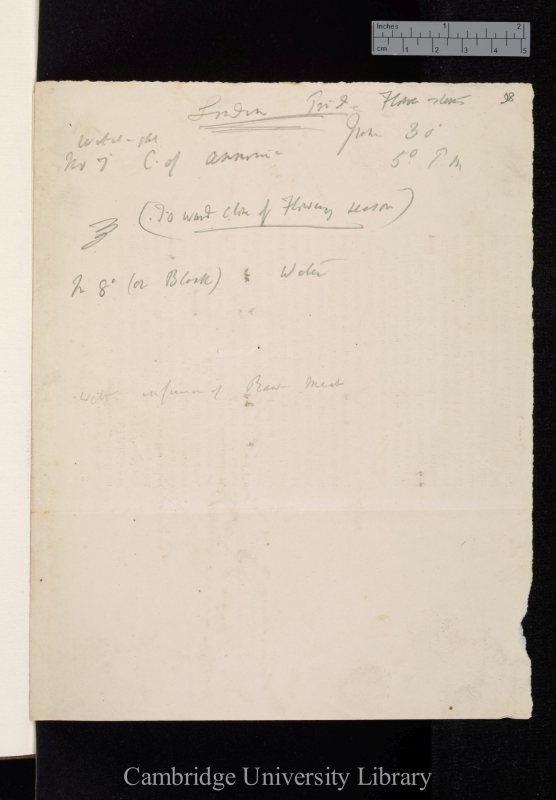 Inches 1 2
cm 1 2 3 4 5
98
London Pride Flower stems
June 30
Water
No 7 C. of Ammonia
5° P m
(Towards close of Flowering season)
N 8° (or Black) Water
infusion of Raw Meat
Cambridge University Library